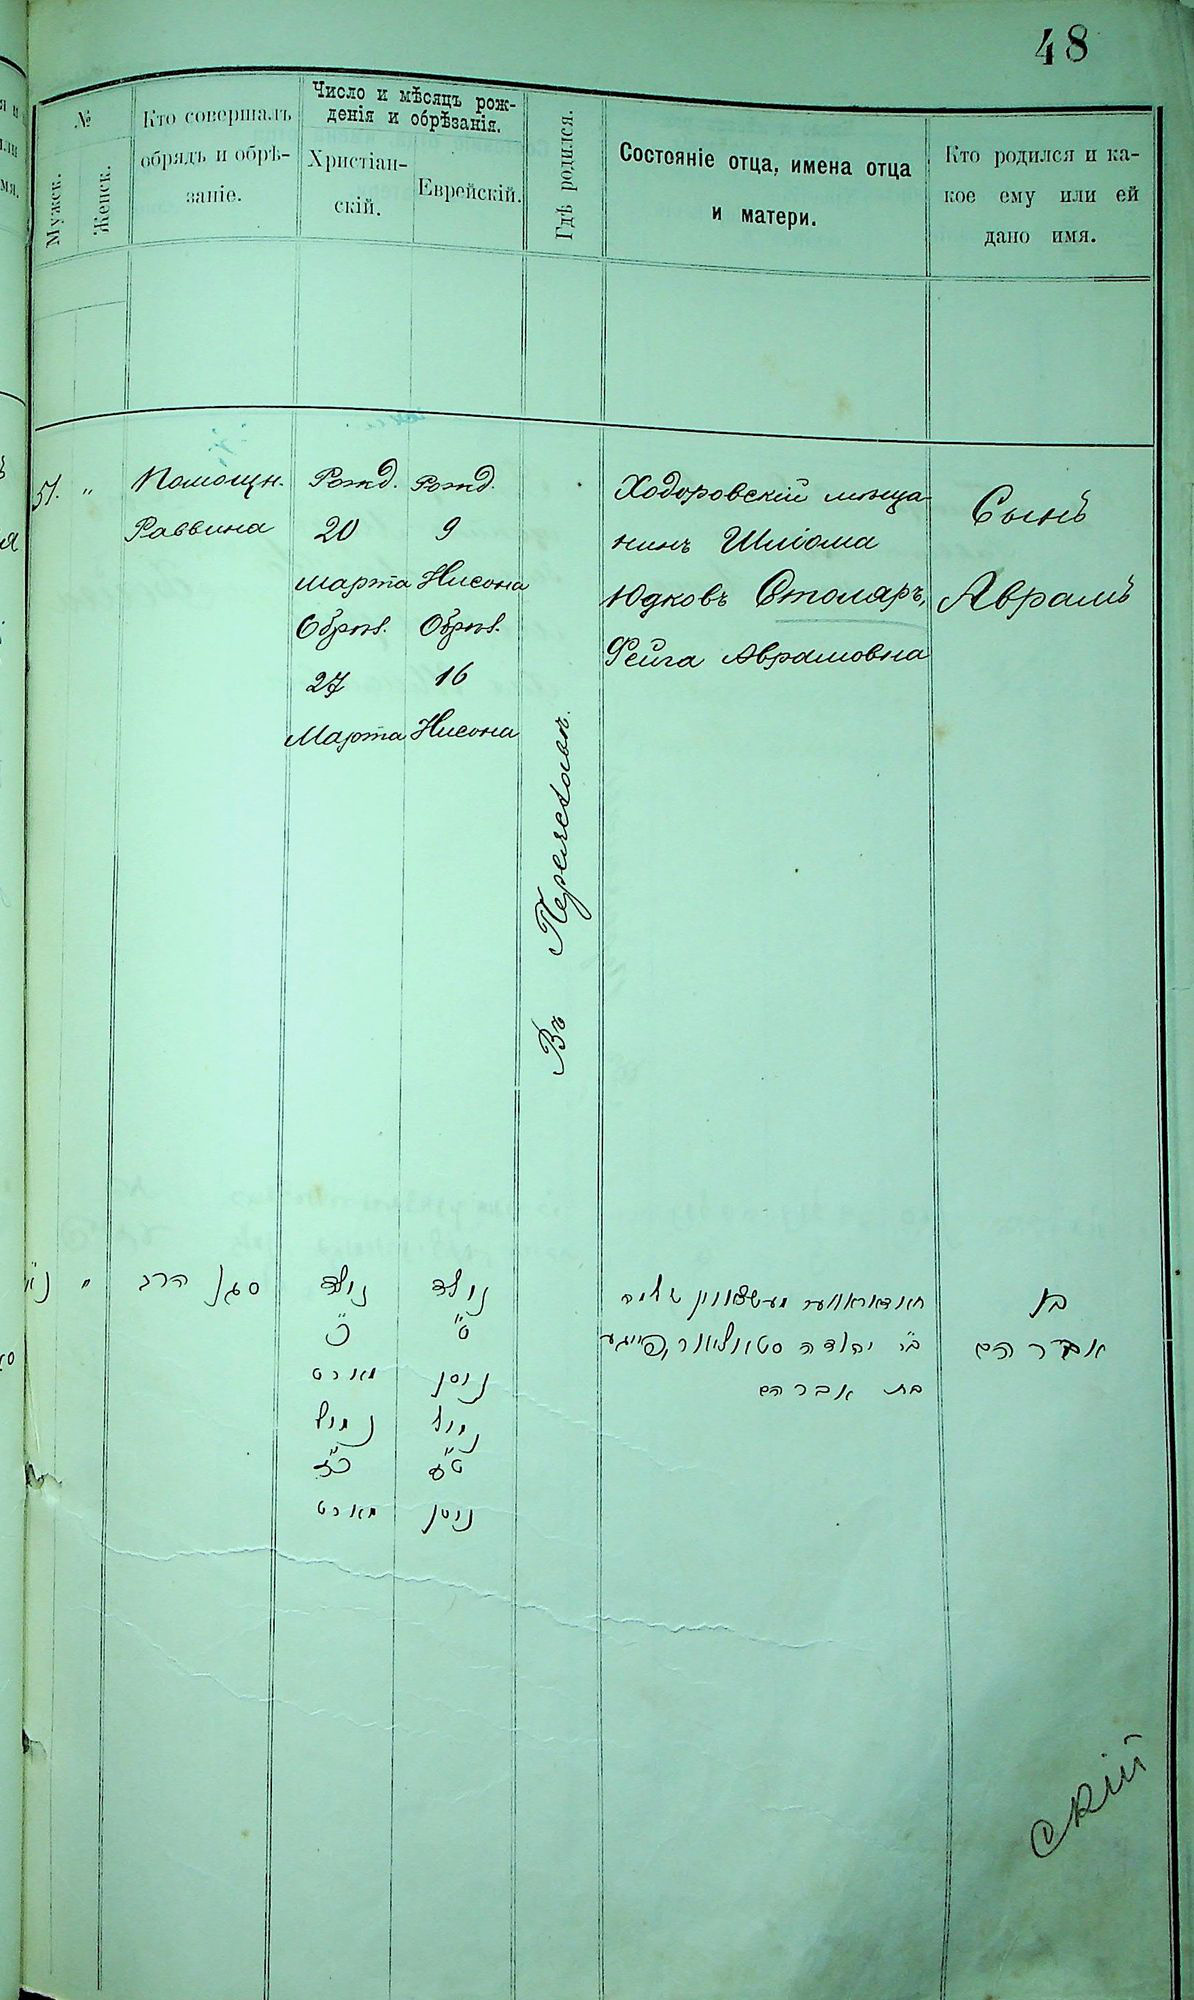 48
№
Мужск.
Женск.
Кто совершалъ
обрядъ и обрѣ-
заніе.
Число и мѣсяцъ рож-
денія и обрѣзанія.
Христіан-
скій.
Еврейскій.
Гдѣ родился.
Состояніе отца, имена отца
и матери.
Кто родился и ка-
кое ему или ей
дано имя.
51. "
Помощн.
Раввина
Рожд.
20
Марта
Обрѣз.
27
Марта
Рожд.
9
Нисона
Обрѣз.
16
Нисона
Въ Переяславѣ.
Ходоровскій мѣща-
нинъ Шліома
Юдковъ Столяръ,
Фейга Аврамовна
Сынъ
Аврамъ
נ"א "
סגן הרב
נולד
כ"
מארט
נימול
כ"ז
מארט
נולד
ט"
ניסן
נימול
ט"ז
ניסן
חאדאראווער מעשצאנין שלמה
ב"ר יהודה סטאליאר, פייגע
בת אברהם
בן
אברהם
скій